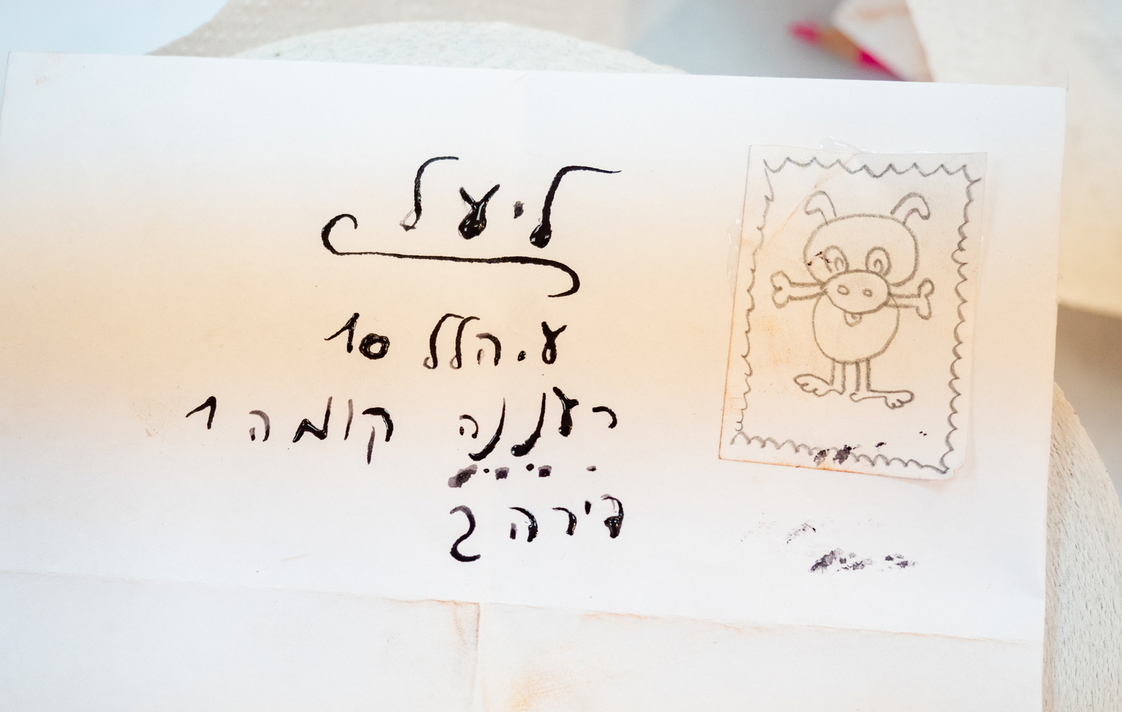 ליעל
ע.הלל 10
רעננה קומה 1
דירה 2